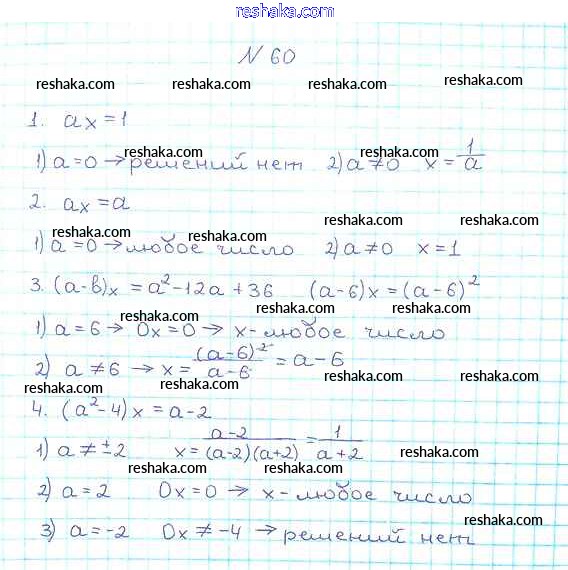 reshaka.com
N 60
reshaka.com reshaka.com reshaka.com reshaka.com
1. ax = 1
reshaka.com reshaka.com
1) a = 0 → решений нет 2) a ≠ 0 x = 1/a
2. ax = a
reshaka.com reshaka.com reshaka.com reshaka.com
1) a = 0 → любое число 2) a ≠ 0 x = 1
3. (a-в)x = a² - 12a + 36 (a-6)x = (a-6)²
reshaka.com reshaka.com reshaka.com
1) a = 6 → 0x = 0 → x - любое число
reshaka.com reshaka.com
2) a ≠ 6 → x = (a-6)²/a-6 = a-6
reshaka.com reshaka.com
4. (a²-4)x = a-2
reshaka.com
1) a ≠ ±2 x = a-2/(a-2)(a+2) = 1/a+2
reshaka.com reshaka.com reshaka.com
2) a = 2 0x = 0 → x - любое число
reshaka.com reshaka.com reshaka.com
3) a = -2 0x ≠ -4 → решений нет
reshaka.com reshaka.com